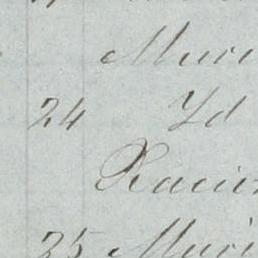 Muri
24 Yd
Racio
25 Muri